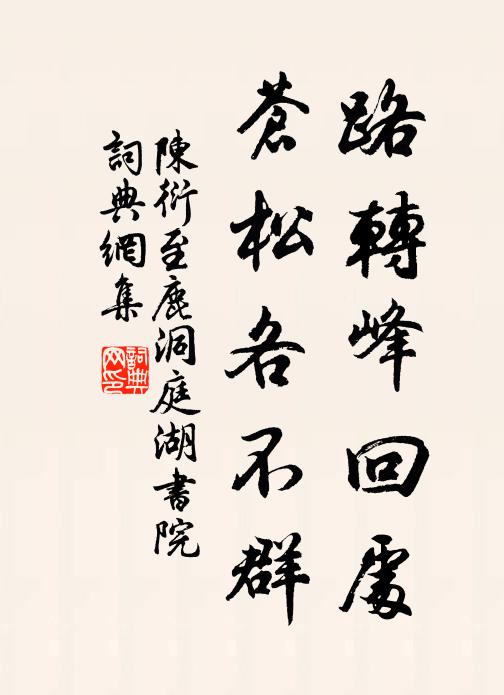 路轉峰回處
蒼松各不群
陳衍至鹿洞庭湖書院
詞典網集
詞典网印